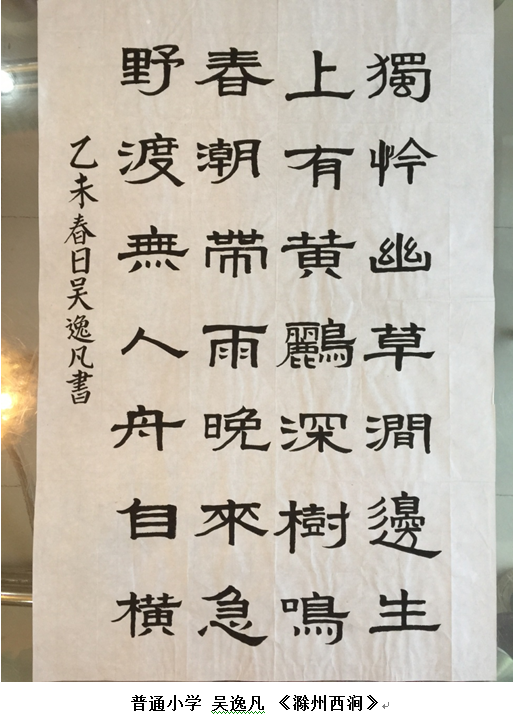 獨怜幽草澗邊生
上有黄鸝深樹鳴
春潮帶雨晚來急
野渡無人舟自横
乙未春日吴逸凡書
普通小学 吴逸凡 《滁州西涧》